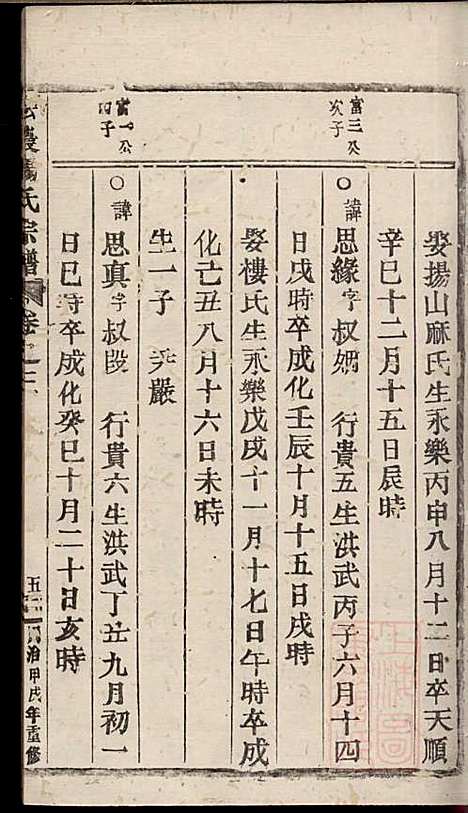 娶揚山麻氏生永樂丙申八月十二日卒天順
辛巳十二月十五日辰時
富三公次子
○諱思緣字叔婣 行貴五生洪武丙子六月十四
日戌時卒成化壬辰十月十五日戌時
娶樓氏生永樂戊戌十一月十七日午時卒成
化己丑八月十六日未時
生一子 嚴
富一公四子
○諱思真字叔段 行貴六生洪武丁丑九月初一
日巳時卒成化癸巳十月二十日亥時
氏宗譜 卷 五 治甲戌年重修